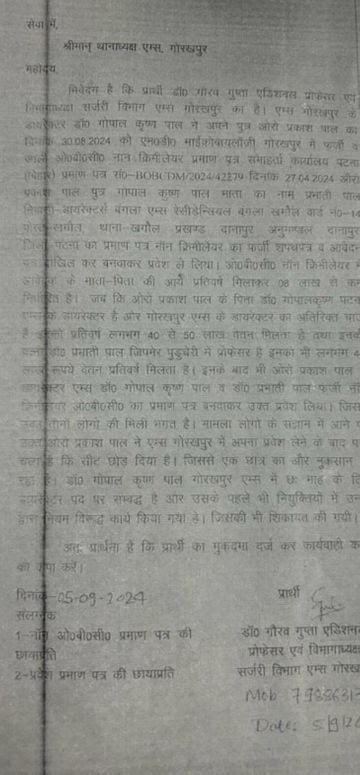 सेवा में,
श्रीमान् थानाध्यक्ष एम्स, गोरखपुर
महोदय,
निवेदन है कि प्रार्थी डॉ० गौरव गुप्ता एडिशनल प्रोफेसर एवं
विभागाध्यक्ष सर्जरी विभाग एम्स गोरखपुर का है। एम्स गोरखपुर के
डायरेक्टर डॉ० गोपाल कृष्ण पाल ने अपने पुत्र ओरो प्रकाश पाल का
दिनांक 30.08.2024 को एम०डी० माईक्रोबायलॉजी गोरखपुर में फर्जी व
जाली ओ०बी०सी० नान क्रिमीलेयर प्रमाण पत्र समाहर्ता कार्यालय पटना
(बिहार) प्रमाण पत्र सं०-BOBCDM/2024/42279 दिनांक 27.04.2024 ओरो
प्रकाश पाल पुत्र गोपाल कृष्ण पाल माता का नाम प्रभाती पाल
निवासी-डायरेक्टर्स बंगला एम्स रेसीडेन्सियल बंगला खगौल वार्ड नं०-1
पोस्ट-खगौल, थाना-खगौल प्रखण्ड दानापुर अनुमण्डल दानापुर
जिला पटना का प्रमाण पत्र नॉन क्रिमीलेयर का फर्जी शपथपत्र व आवेदन
पत्र दाखिल कर बनवाकर प्रवेश ले लिया। ओ०बी०सी० नॉन क्रिमीलेयर
के माता-पिता की आय प्रतिवर्ष मिलाकर 08 लाख से कम
निर्धारित है। जब कि ओरो प्रकाश पाल के पिता डॉ० गोपालकृष्ण पटना
एम्स के डायरेक्टर है और गोरखपुर एम्स के डायरेक्टर का अतिरिक्त चार्ज
है इनको प्रतिवर्ष लगभग 40 से 50 लाख वेतन मिलता है तथा इनकी
पत्नी डॉ० प्रभाती पाल जिपमेर पुडुचेरी में प्रोफेसर है इनका भी लगभग 4
लाख रूपये वेतन प्रतिवर्ष मिलता है। इनके बाद भी ओरो प्रकाश पाल
डायरेक्टर एम्स डॉ० गोपाल कृष्ण पाल व डॉ० प्रभाती पाल फर्जी नॉ
क्रिमीलेयर ओ०बी०सी० का प्रमाण पत्र बनवाकर उक्त प्रवेश लिया। जिस
उक्त तीनों लोगों की मिली भगत है। मामला लोगों के संज्ञान में आने प
उक्त ओरो प्रकाश पाल ने एम्स गोरखपुर में अपना प्रवेश लेने के बाद प
चला है कि सीट छोड़ दिया है। जिससे एक छात्र का और नुकसान
रहा है। डॉ० गोपाल कृष्ण पाल गोरखपुर एम्स में छः माह के लि
डायरेक्टर पद पर सम्बद्ध है और उसके पहले भी नियुक्तियों में उन
द्वारा नियम विरूद्ध कार्य किया गया है। जिसकी भी शिकायत की गयी।
अतः प्रार्थना है कि प्रार्थी का मुकदमा दर्ज कर कार्यवाही क
का कृपा करें।
दिनांक-05-09-2024 प्रार्थी
संलग्नक
1-नॉन ओ०बी०सी० प्रमाण पत्र की
छायाप्रति
2-प्रवेश प्रमाण पत्र की छायाप्रति
डॉ० गौरव गुप्ता एडिशन
प्रोफेसर एवं विभागाध्यक्ष
सर्जरी विभाग एम्स गोरख
Mob
Date: 5/9/20